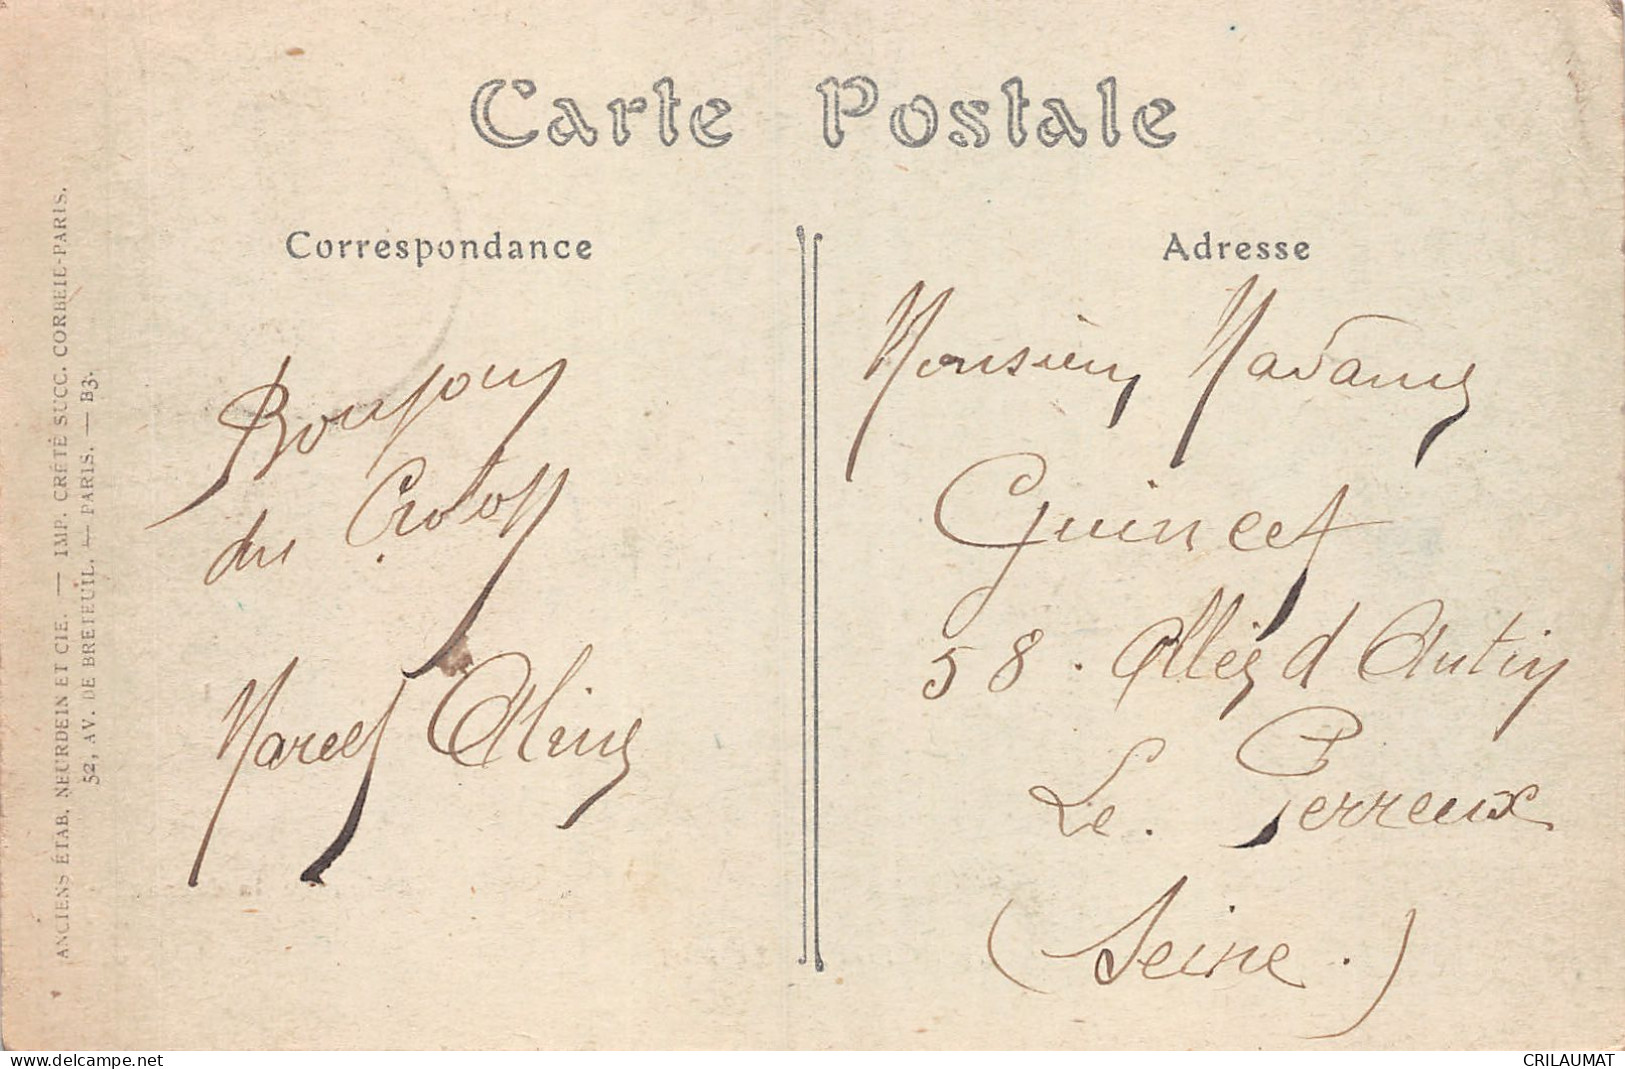 Carte Postale
Correspondance
Bonjour
du Crotoy
Marcel Aline
Adresse
Monsieur Madame
Guincet
58. Allée d Antin
Le. Perreux
(Seine.)
ANCIENS ÉTAB. NEURDEIN ET CIE. — IMP. CRÉTÉ SUCC. CORBEIL-PARIS.
52, AV. DE BRETEUIL. — PARIS. — B3.
www.delcampe.net
CRILAUMAT